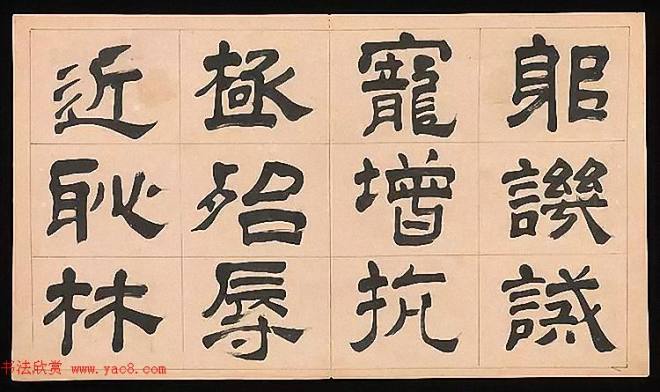 躳譏誡
寵增抗
極殆辱
近恥林
书法欣赏 www.yac8.com